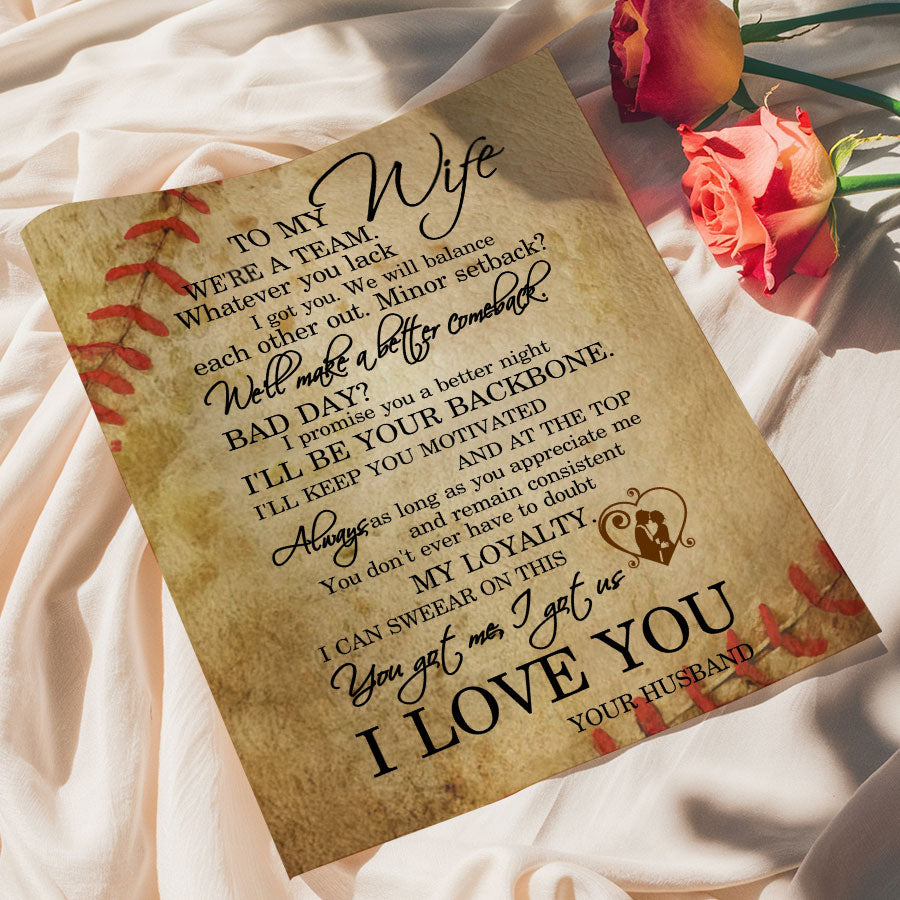 TO MY Wife
WE'RE A TEAM.
Whatever you lack
I got you. We will balance
each other out. Minor setback?
We'll make a better comeback.
BAD DAY?
I promise you a better night
I'LL BE YOUR BACKBONE.
I'LL KEEP YOU MOTIVATED
AND AT THE TOP
Always, as long as you appreciate me
and remain consistent
You don't ever have to doubt
MY LOYALTY.
I CAN SWEEAR ON THIS
You got me, I got us
I LOVE YOU
YOUR HUSBAND